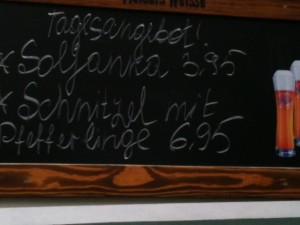 Tagesangebot!
* Soljanka 3,95
* Schnitzel mit
Pfefferlinge 6,95